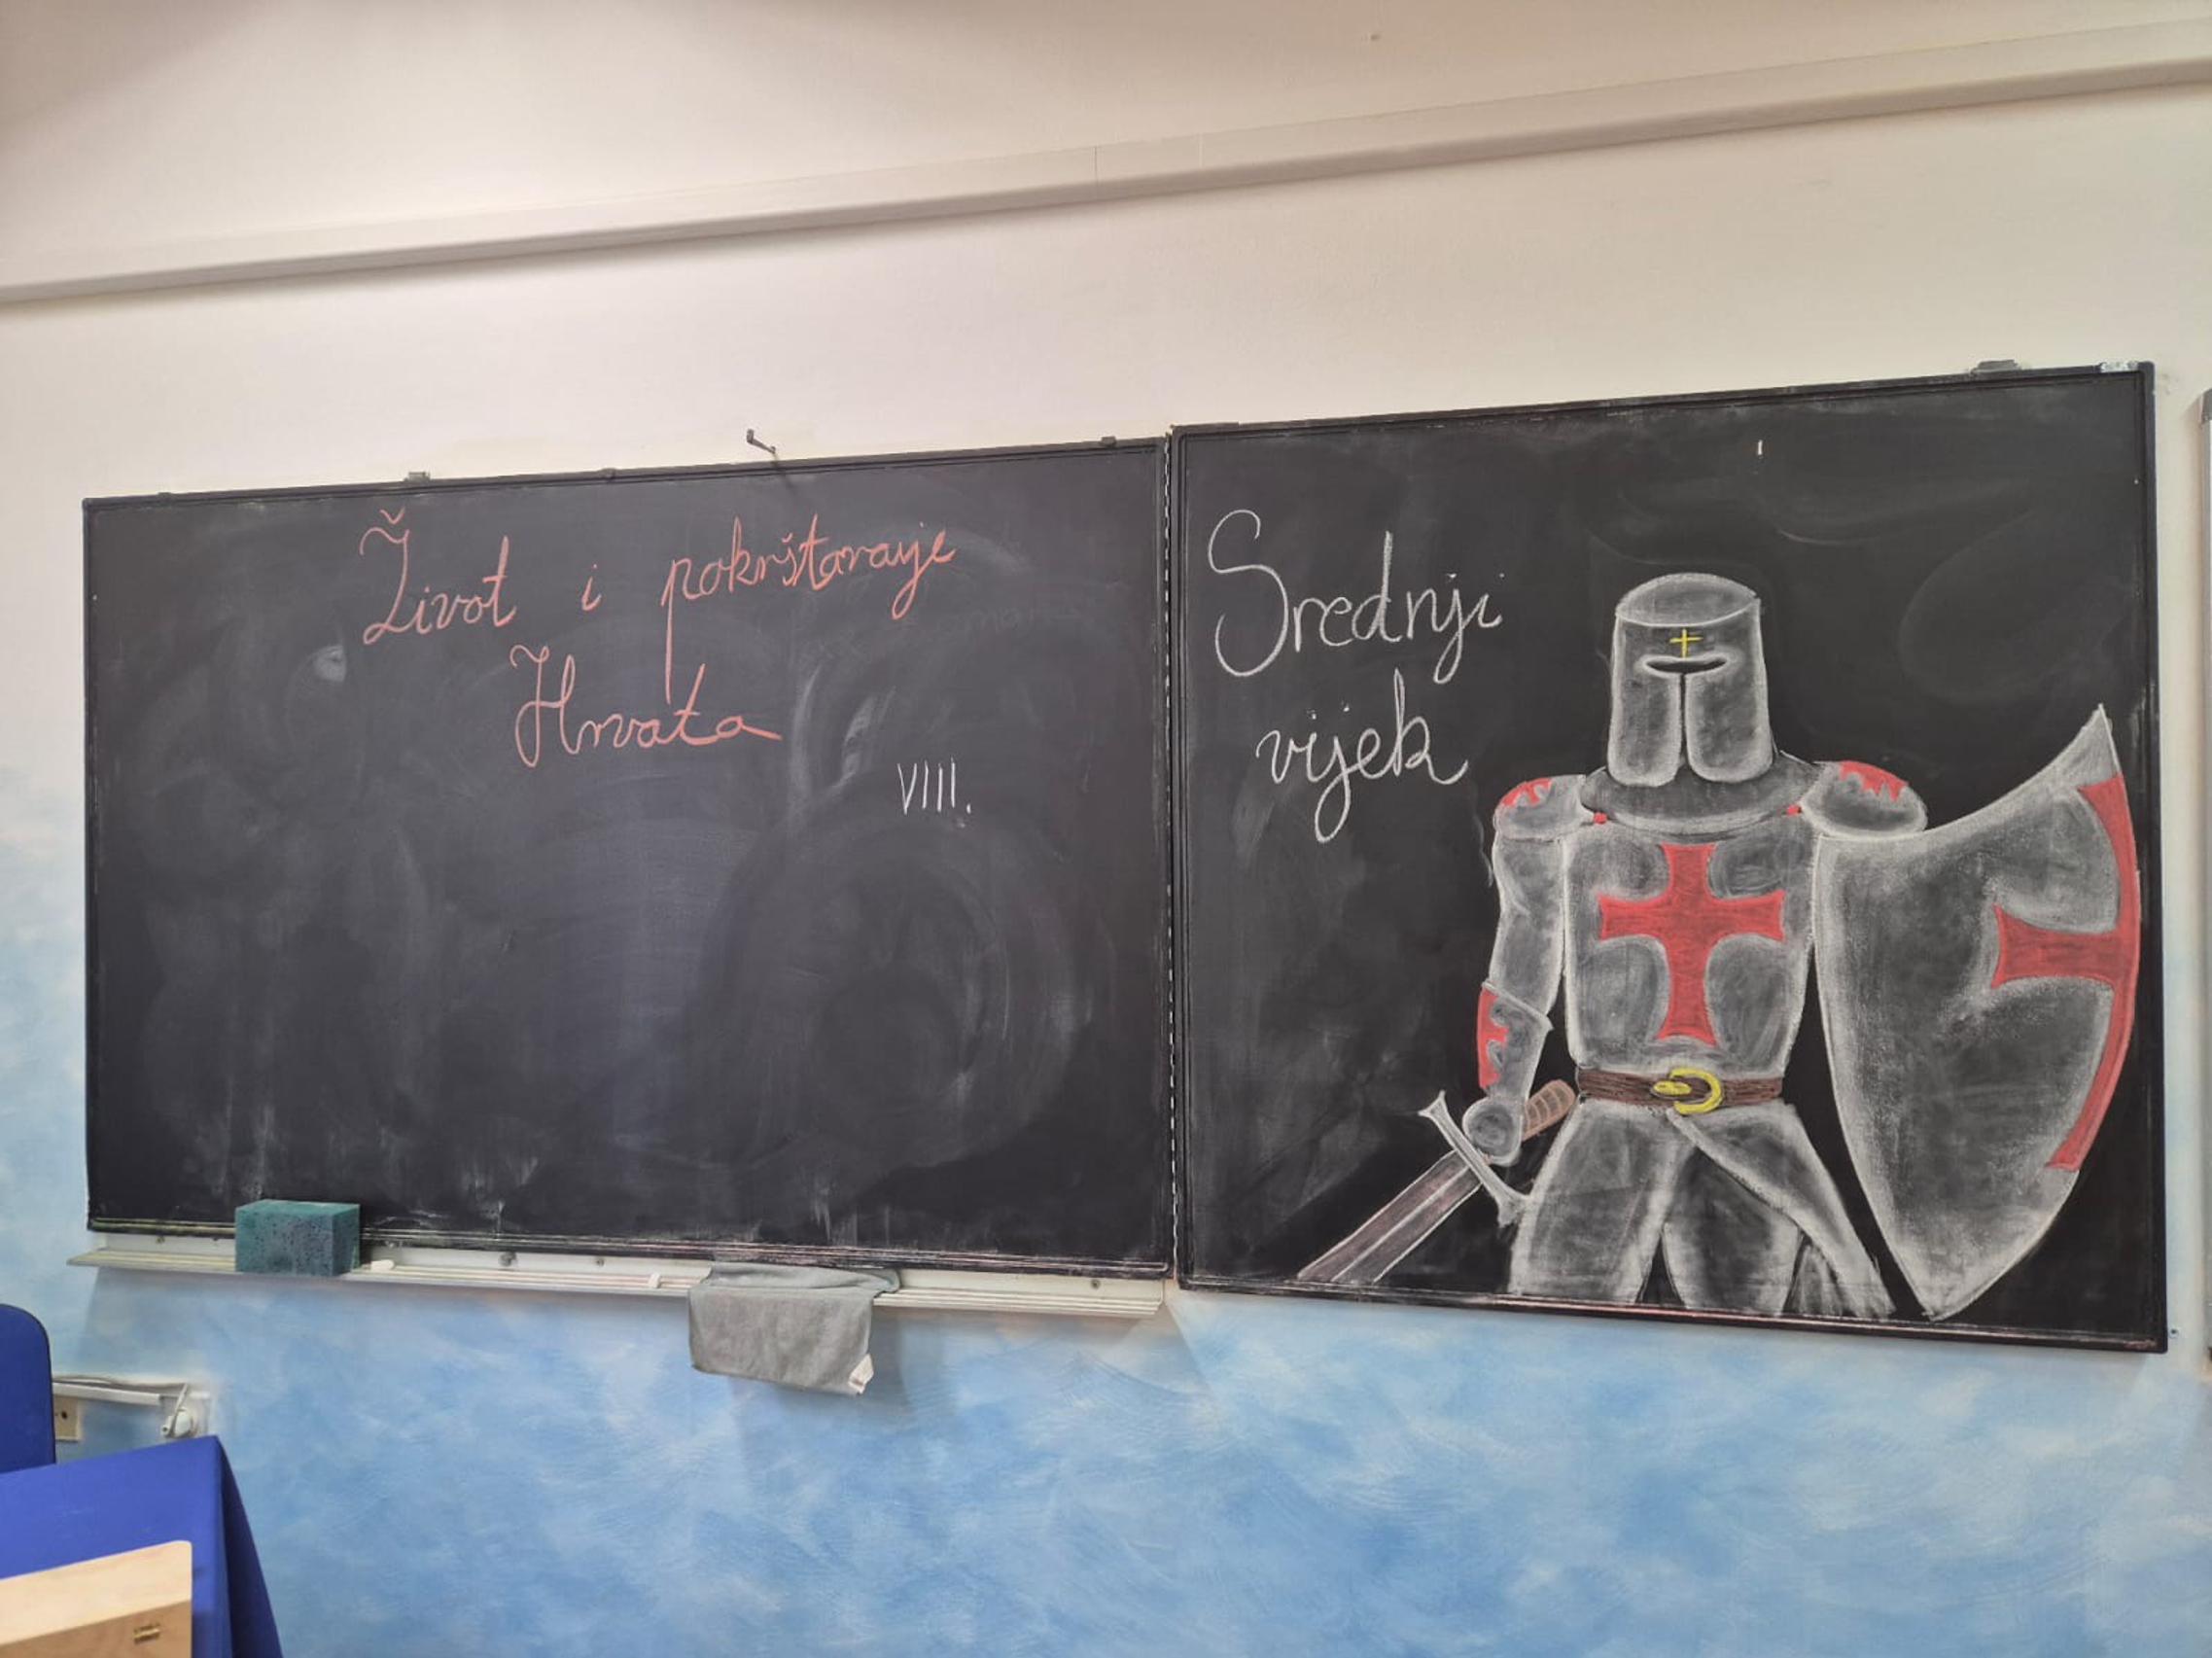 Život i pokrštavanje
Hrvata
VIII.
Srednji
vijek